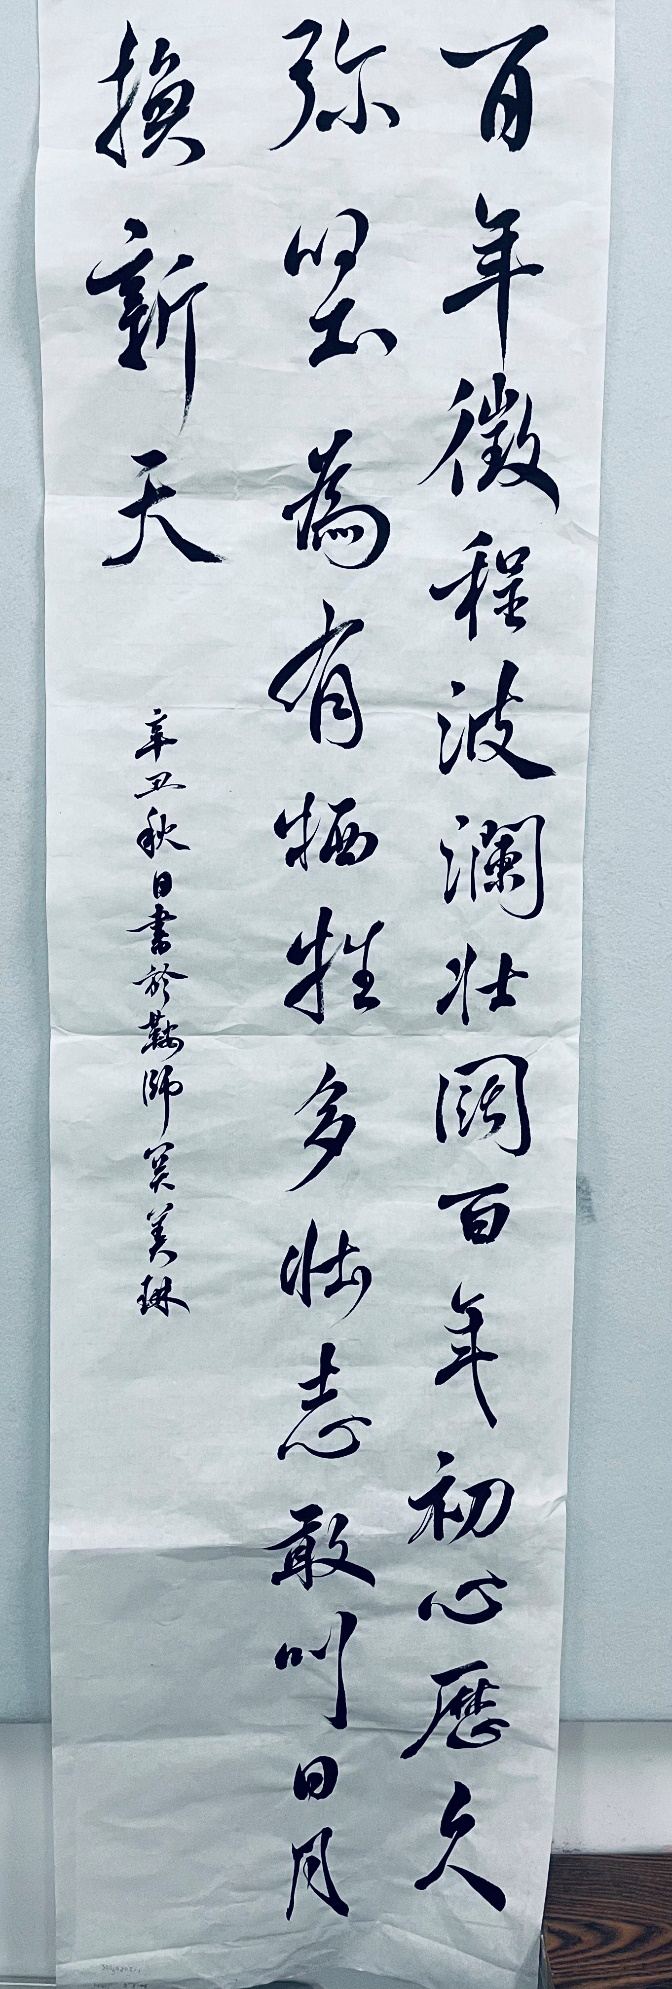 百年徵程波瀾壮闊百年初心歷久
弥坚為有牺牲多壮志敢叫日月
换新天
辛丑秋日書於鞍師吴美琳